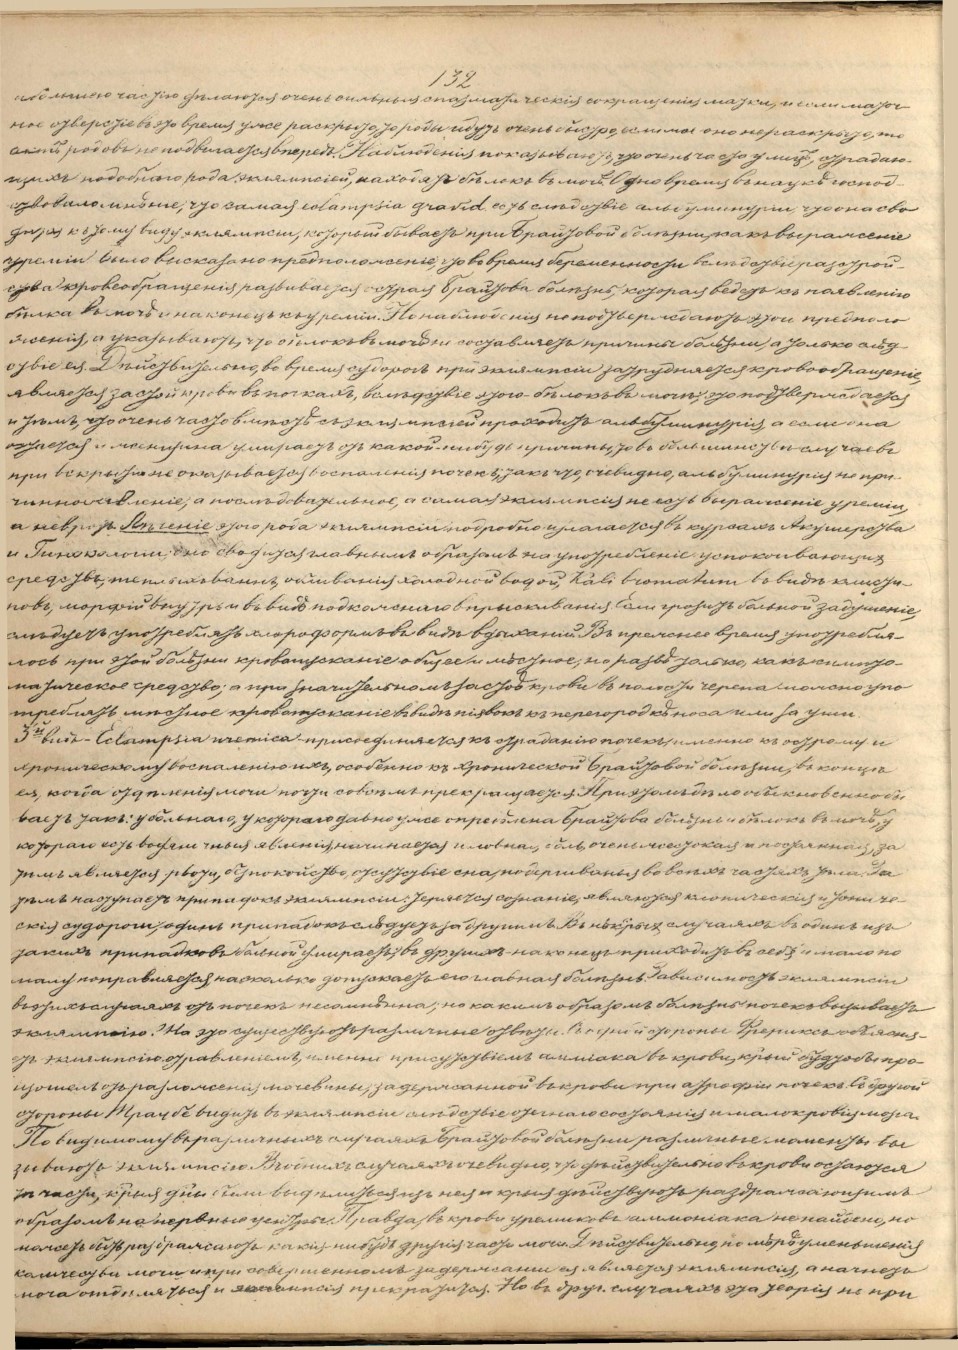 132
и большею частію дѣлаются очень сильныя спазматическія сокращенія матки, и если маточ-
ное отверстіе въ это время уже раскрыто, то роды идутъ очень быстро, если же оно нераскрыто, то
актъ родовъ не подвигается впередъ. Наблюденія показываютъ, что очень часто у лицъ, страдаю-
щихъ подобнаго рода эклямпсіей, находятъ бѣлокъ въ мочѣ. Одно время въ наукѣ господ-
ствовало мнѣніе, что самая eclampsia gravid. есть слѣдствіе альбуминуріи, что она сво
дится къ тому виду эклямпсіи, который бываетъ при Брайтовой болѣзни, какъ выраженіе
уреміи. Было высказано предположеніе, что во время беременности вслѣдствіе разстрой-
ства кровеобращенія развивается острая Брайтова болѣзнь, которая ведетъ къ появленію
бѣлка въ мочѣ и наконецъ къ уреміи. Но наблюденія не подтверждаютъ этои предполо
женія, а указываютъ, что бѣлокъ въ мочѣ не составляетъ причины болѣзни, а только слѣд-
ствіе ея. Дѣйствительно, во время судорогъ при эклямпсіи затрудняется кровообращеніе,
является застой крови въ почкахъ, вслѣдствіе этого бѣлокъ въ мочѣ; это подтверждается
и тѣмъ, что очень часто вмѣстѣ съ эклямпсіей проходитъ альбуминурія, а если она
остается и женщина умираетъ отъ какой-нибудь причины, то въ большинствѣ случаевъ
при вскрытіи не оказывается воспаленія почекъ; такъ что, очевидно, альбуминурія не при-
чинное явленіе, а послѣдовательное, а самая эклямпсія не есть выраженіе уреміи,
а неврозъ. Лѣченіе этого рода эклямпсіи подробно излагается въ курсахъ Акушерства
и Гинекологіи; оно сводится главнымъ образомъ на употребленіе успокоивающихъ
средствъ, теплыхъ ваннъ, обливанія холодной водой, Kali bromatum въ видѣ клисти-
ровъ, морфій внутрь и въ видѣ подкожнаго впрыскиванія. Если грозитъ больной задушеніе,
слѣдуетъ употреблять хлороформъ въ видѣ вдыханій. Въ прежнее время употребля-
лось при этой болѣзни кровопусканіе общее и мѣстное, но развѣ только, какъ симпто-
матическое средство; а при значительномъ застоѣ крови въ полости черепа можно упо
треблять мѣстное кровопусканіе въ видѣ піявокъ къ перегородкѣ носа или за уши.
3й видъ - Eclampsia uremica - присоединяется къ страданію почекъ, именно къ острому и
хроническому воспаленію ихъ, особенно къ хронической Брайтовой болѣзни, въ концѣ
ея, когда отдѣленія мочи почти совсѣмъ прекращается. При этомъ дѣло обыкновенно бы
ваетъ такъ: у больнаго, у котораго давно уже опредѣлена Брайтова болѣзнь и бѣлокъ въ мочѣ, у
котораго есть водяночныя явленія, начинается головная боль, очень жестокая и постоянная, за
тѣмъ является рвота, безпокойство, отсутствіе сна, подергиванья во всѣхъ частяхъ тѣла. За
тѣмъ наступаетъ припадокъ эклямпсіи: теряется сознаніе, являются клоническія и тониче-
скія судороги; одинъ припадокъ слѣдуетъ за другимъ. Въ нѣкрыхъ случаяхъ въ одинъ изъ
такихъ припадковъ больной умираетъ, въ другихъ - наконецъ приходитъ въ себя и мало по
малу поправляется насколько допускаетъ его главная болѣзнь. Зависимость эклямпсіи
въ этихъ случаяхъ отъ почекъ несомнѣнна; но какимъ образомъ болѣзнь почекъ вызываетъ
эклямпсію? На это существуютъ различные отвѣты. Съ одной стороны Фрериксъ объясня-
етъ эклямпсію отравленіемъ, именно присутствіемъ амміака въ крови, крый будто бы про-
изошелъ отъ разложенія мочевины, задержанной въ крови при атрофіи почекъ. Съ другой
стороны Траубе видитъ въ эклямпсіи слѣдствіе отечнаго состоянія и малокровія мозга.
По видимому въ различныхъ случаяхъ Брайтовой болѣзни различные моменты вы
зываютъ эклямпсію. Въ однихъ случаяхъ очевидно, что дѣйствительно въ крови остаются
тѣ части, крыя д.бы были выдѣлиться изъ нея и крыя дѣйствуютъ раздражающимъ
образомъ на нервные центры. Правда, въ крови уремиковъ амміака не найдено, но
можетъ быть раздражаютъ какія-нибудь другія части мочи. Дѣйствительно, по мѣрѣ уменьшенія
количества мочи и при совершенномъ задержаніи ея является эклямпсія, а начнетъ
моча отдѣляться и эклямпсія прекратится. Но въ друг. случаяхъ эта теорія не при